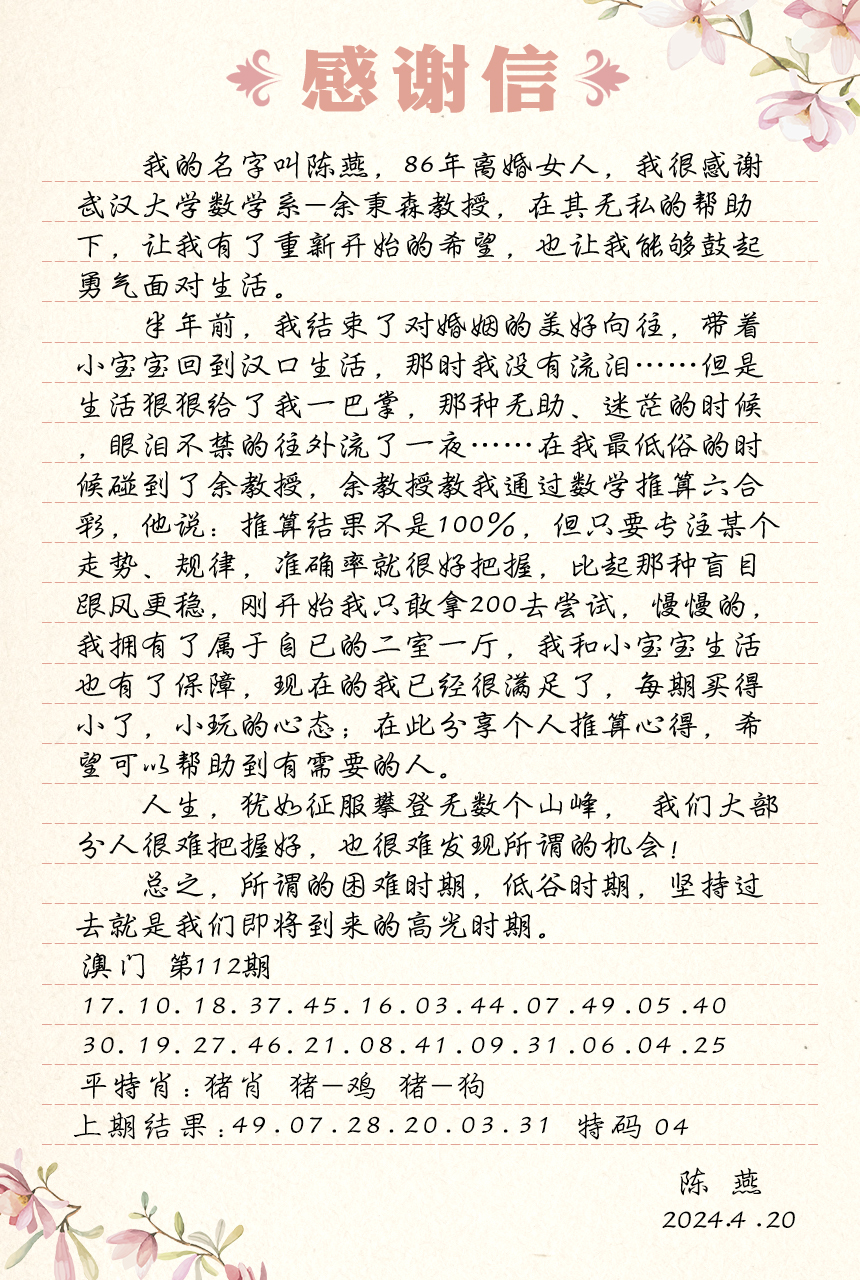 感谢信
我的名字叫陈燕，86年离婚女人，我很感谢
武汉大学数学系-余秉森教授，在其无私的帮助
下，让我有了重新开始的希望，也让我能够鼓起
勇气面对生活。
半年前，我结束了对婚姻的美好向往，带着
小宝宝回到汉口生活，那时我没有流泪……但是
生活狠狠给了我一巴掌，那种无助、迷茫的时候
，眼泪不禁的往外流了一夜……在我最低俗的时
候碰到了余教授，余教授教我通过数学推算六合
彩，他说：推算结果不是100%，但只要专注某个
走势、规律，准确率就很好把握，比起那种盲目
跟风更稳，刚开始我只敢拿200去尝试，慢慢的，
我拥有了属于自已的二室一厅，我和小宝宝生活
也有了保障，现在的我已经很满足了，每期买得
小了，小玩的心态；在此分享个人推算心得，希
望可以帮助到有需要的人。
人生，犹如征服攀登无数个山峰， 我们大部
分人很难把握好，也很难发现所谓的机会！
总之，所谓的困难时期，低谷时期，坚持过
去就是我们即将到来的高光时期。
澳门 第112期
17.10.18.37.45.16.03.44.07.49.05.40
30.19.27.46.21.08.41.09.31.06.04.25
平特肖：猪肖 猪-鸡 猪-狗
上期结果：49.07.28.20.03.31 特码 04
陈 燕
2024.4.20